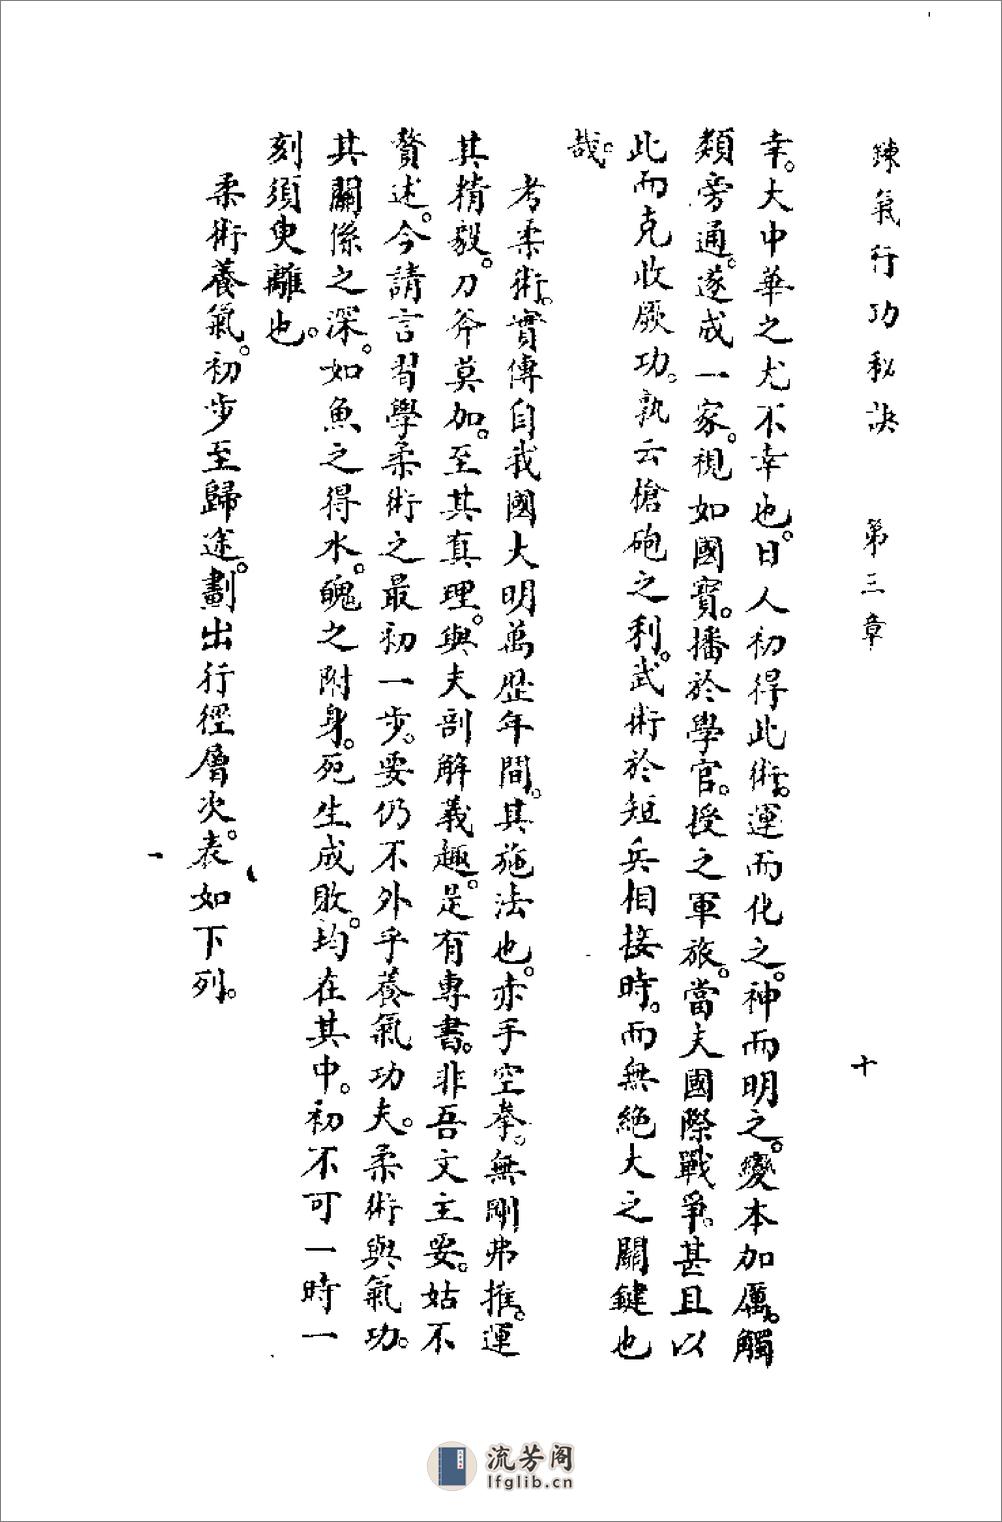 鍊氣行功秘訣　第三章　十
幸。大中華之尤不幸也。日人初得此術。運而化之。神而明之。變本加厲。觸
類旁通。遂成一家。視如國寶。播於學官。授之軍旅。當夫國際戰爭。甚且以
此而克收厥功。孰云槍砲之利。武術於短兵相接時。而無絕大之關鍵也
哉。
考柔術。實傳自我國大明萬歷年間。其施法也。赤手空拳。無剛弗摧。運
其精毅。刀斧莫加。至其真理。與夫剖解義趣。是有專書。非吾文主要。姑不
贅述。今請言習學柔術之最初一步。要仍不外乎養氣功夫。柔術與氣功。
其關係之深。如魚之得水。魄之附身。死生成敗。均在其中。初不可一時一
刻須臾離也。
柔術養氣。初步至歸途。劃出行徑層次。表如下列。
流芳阁
lfglib.cn